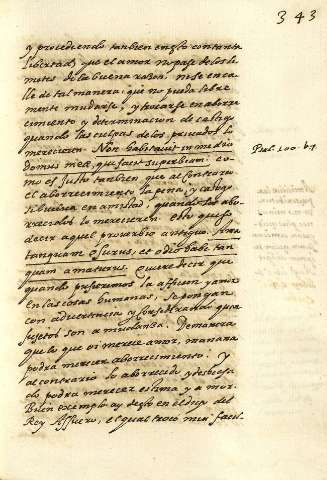 343
y procediendo tanbien en esto con tanta
libertad, que el amor no pase de los li-
mites de la buena razon. ni se enca-
lle de tal manera, que no pueda sobre
mente mudarse, y trocarse en aborre-
cimiento y determinacion de castigo
quando las culpas de los privados lo
merecieren. Non habitavit in medio
domus meæ, qui facit superbiam. co-
Psal. 100. b.7
mo es justo tanbien que al contrario
el aborrecimiento, la pena, y castigo
se buelva en amistad, quando los abo-
rrecidos lo merecieren. esto quiso
decir aquel proverbio antiguo. Ama
tanquam osurus, et odio habe tan
quam amaturus. Quiere decir que
quando pusieremos la afficion y amor
en las cosas humanas, se pongan
con advertencia, y considerando que
sujetos son a mudanza. De manera
que lo que oi merece amor, mañana
podra merecer aborrecimiento. Y
al contrario lo aborrecido y desecha-
do podra merecer estima y amor.
Buen exemplo ay desto en el del
Rey Assuero, el qual trocó mui facil-